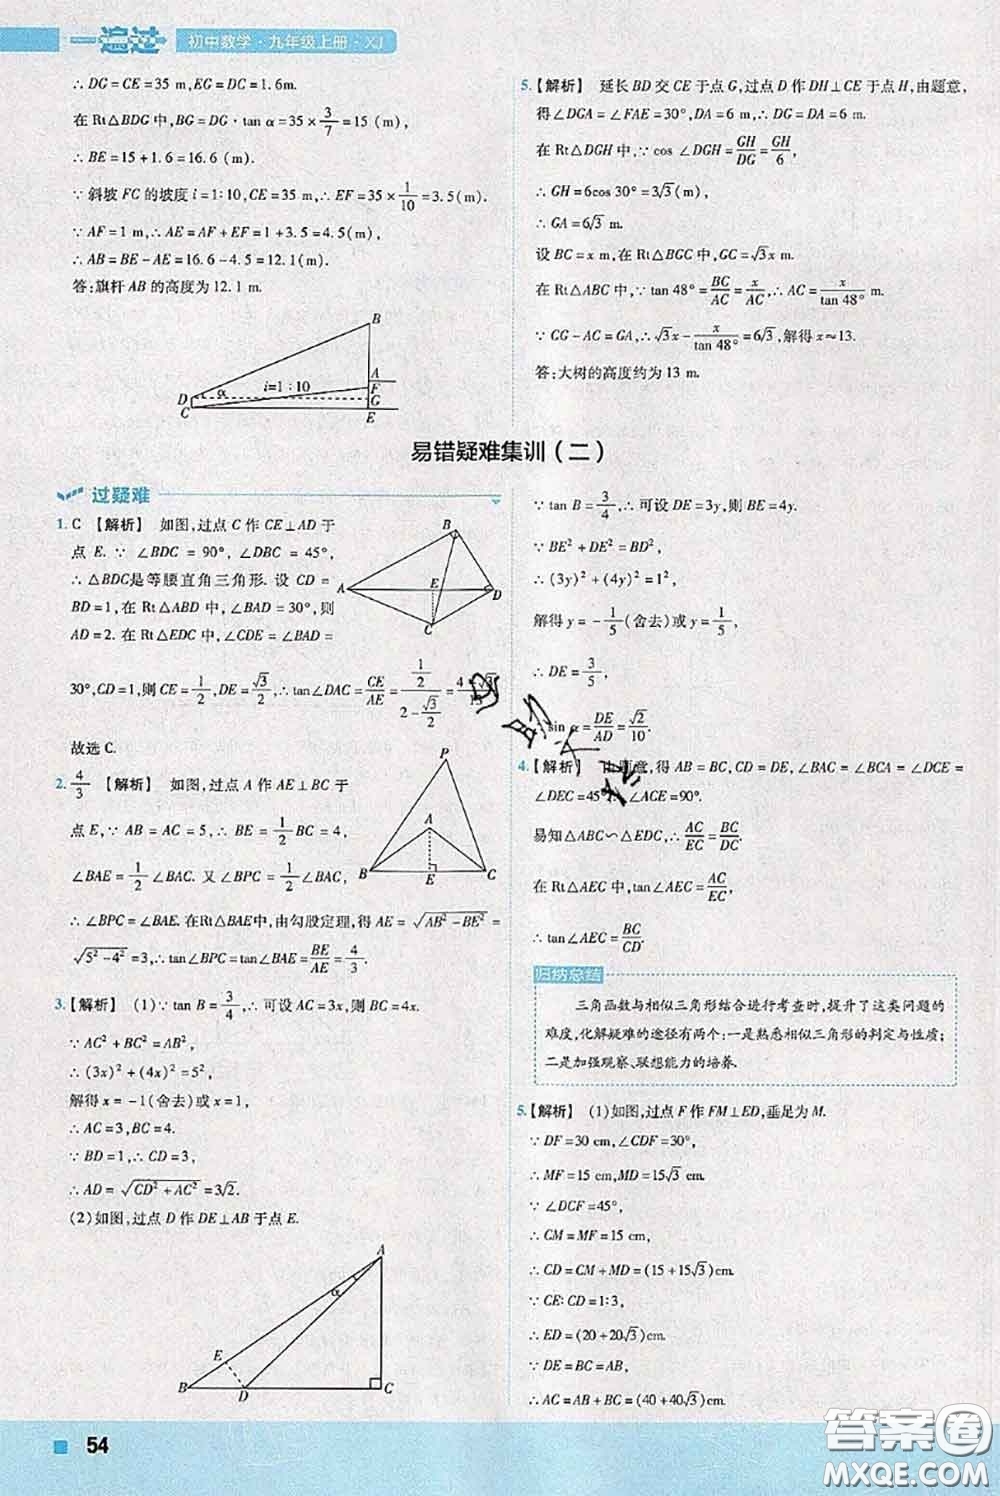 一遍过 初中数学·九年级上册·XJ
∴ DG = CE = 35 m, EG = DC = 1.6m.
在 Rt△BDG 中, BG = DG · tan α = 35 × 3/7 = 15 (m),
∴ BE = 15 + 1.6 = 16.6 (m).
∵ 斜坡 FC 的坡度 i = 1∶10, CE = 35 m, ∴ EF = 35 × 1/10 = 3.5(m).
∵ AF = 1 m, ∴ AE = AF + EF = 1 + 3.5 = 4.5(m),
∴ AB = BE − AE = 16.6 − 4.5 = 12.1(m).
答:旗杆 AB 的高度为 12.1 m.
B
A
F
G
E
D
C
α
i=1∶10
5.【解析】 延长 BD 交 CE 于点 G, 过点 D 作 DH⊥CE 于点 H, 由题意,
得∠DGA = ∠FAE = 30°, DA = 6 m, ∴ DG = DA = 6 m.
在 Rt△DGH 中, ∵ cos ∠DGH = GH/DG = GH/6,
∴ GH = 6cos 30° = 3√3(m),
∴ GA = 6√3 m.
设 BC = x m, 在 Rt△BGC 中, GC = √3x m.
在 Rt△ABC 中, ∵ tan 48° = BC/AC = x/AC, ∴ AC = x/tan 48°.
∵ CG − AC = GA, ∴ √3x − x/tan 48° = 6√3, 解得 x≈13.
答:大树的高度约为 13 m.
易错疑难集训(二)
过疑难
1. C 【解析】 如图, 过点 C 作 CE⊥AD 于
点 E. ∵ ∠BDC = 90°, ∠DBC = 45°,
∴ △BDC是等腰直角三角形. 设 CD =
BD = 1, 在 Rt△ABD 中, ∠BAD = 30°, 则
AD = 2. 在 Rt△EDC 中, ∠CDE = ∠BAD =
30°, CD = 1, 则 CE = 1/2, DE = √3/2, ∴ tan∠DAC = CE/AE = (1/2)/(2 − √3/2) = (4+√3)/13
故选 C.
B
A
E
D
C
2. 4/3 【解析】 如图, 过点 A 作 AE⊥BC 于
点 E, ∵ AB = AC = 5, ∴ BE = 1/2 BC = 4,
∠BAE = 1/2 ∠BAC. 又∠BPC = 1/2 ∠BAC,
∴ ∠BPC = ∠BAE. 在Rt△BAE中, 由勾股定理, 得 AE = √(AB² − BE²) =
√(5² − 4²) = 3, ∴ tan∠BPC = tan∠BAE = BE/AE = 4/3.
P
A
B
E
C
3.【解析】 (1)∵ tan B = 3/4, ∴ 可设 AC = 3x, 则 BC = 4x.
∵ AC² + BC² = AB²,
∴ (3x)² + (4x)² = 5²,
解得 x = −1(舍去)或 x = 1,
∴ AC = 3, BC = 4.
∵ BD = 1, ∴ CD = 3,
∴ AD = √(CD² + AC²) = 3√2.
(2)如图, 过点 D 作 DE⊥AB 于点 E.
A
α
E
B
D
C
∵ tan B = 3/4, ∴ 可设 DE = 3y, 则 BE = 4y.
∵ BE² + DE² = BD²,
∴ (3y)² + (4y)² = 1²,
解得 y = −1/5(舍去)或 y = 1/5,
∴ DE = 3/5,
sin α = DE/AD = √2/10.
4.【解析】 由题意, 得 AB = BC, CD = DE, ∠BAC = ∠BCA = ∠DCE =
∠DEC = 45°, ∠ACE = 90°.
易知△ABC∽△EDC, ∴ AC/EC = BC/DC.
在 Rt△AEC 中, tan∠AEC = AC/EC,
∴ tan∠AEC = BC/CD.
归纳总结
三角函数与相似三角形结合进行考查时, 提升了这类问题的
难度, 化解疑难的途径有两个:一是熟悉相似三角形的判定与性质;
二是加强观察、联想能力的培养.
5.【解析】 (1)如图, 过点 F 作 FM⊥ED, 垂足为 M.
∵ DF = 30 cm, ∠CDF = 30°,
∴ MF = 15 cm, MD = 15√3 cm.
∵ ∠DCF = 45°,
∴ CM = MF = 15 cm,
∴ CD = CM + MD = (15 + 15√3) cm.
∵ CE∶CD = 1∶3,
∴ ED = (20 + 20√3)cm.
∵ DE = BC = AB,
∴ AC = AB + BC = (40 + 40√3) cm.
54
答案圈
MXQE.COM